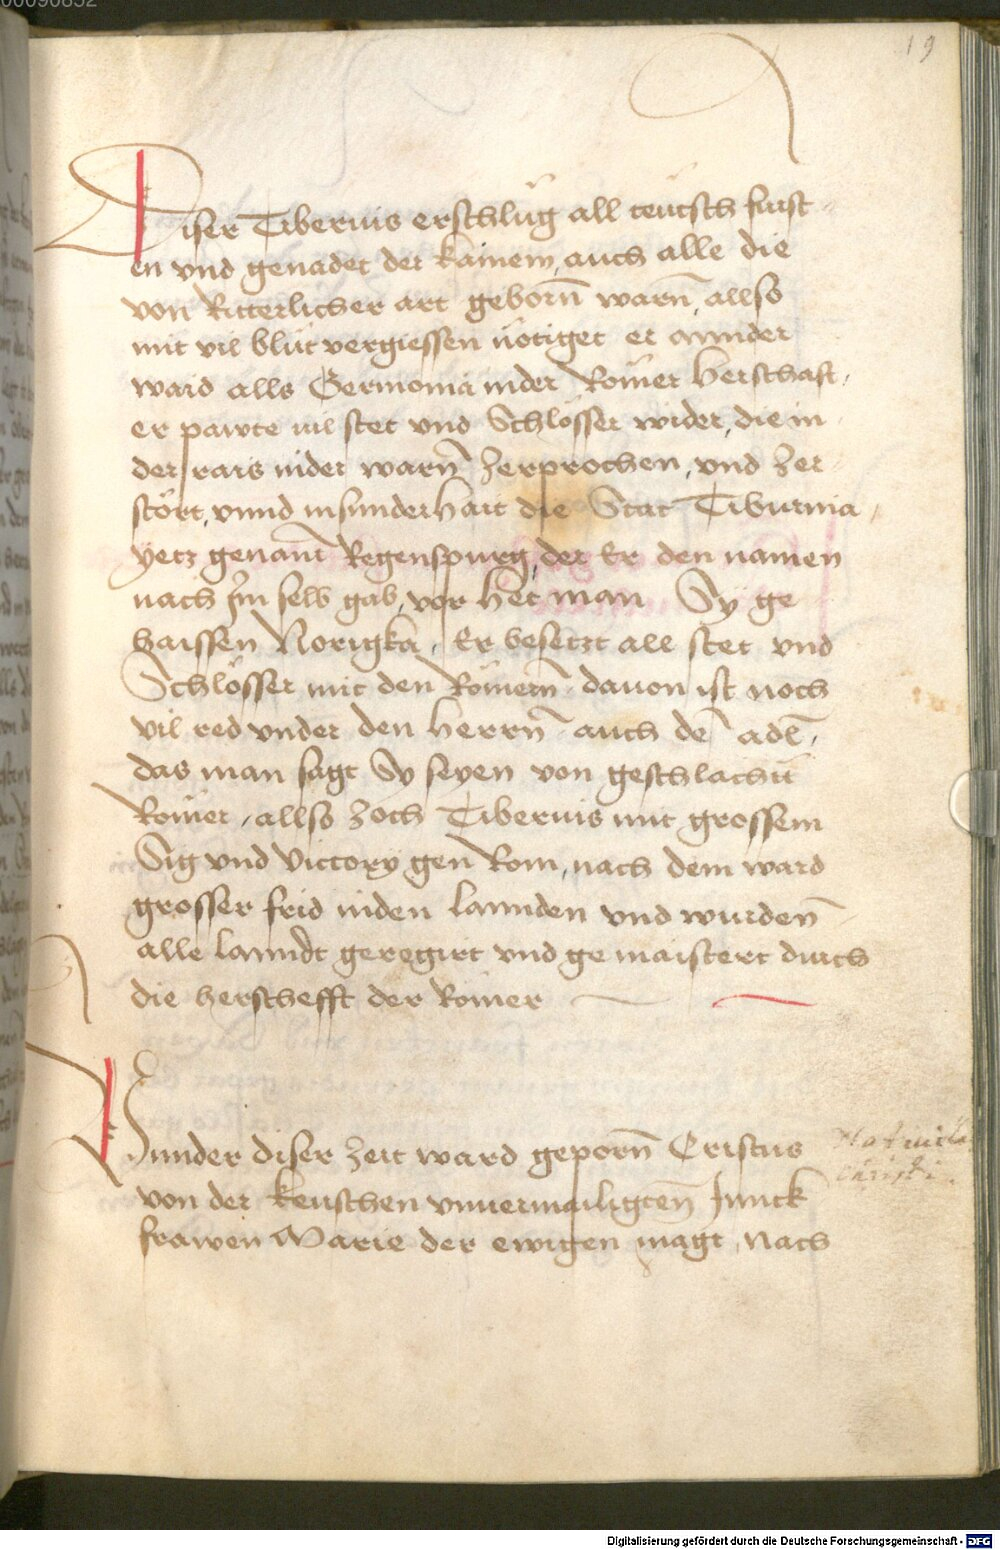 19
Diser Tiberius erschlůg all teűtsch fürst
en vnd genadet der kainem, auch alle die
von Ritterlicher art geborn̄ warn̄, allso
mit vil blůt vergiessen nötiget er vnnder
ward alls Germonia inder Römer herschafft,
er pawte uil stet vnd Schlösser wider, die in
der rais nider warn̄ zerprochen, vnd zer
stört, vnnd in sunderhait die Stat Tiburnia,
yetz genant Regenspurg, der Er den namen
nach Im selb gab, vor het man Sy ge
haissen Norigka, Er besetzt all stet vnd
Schlösser mit den Römern̄, dauon ist noch
vil red vnder den herrn̄ auch de adl,
das man sagt Sy seyen von geschlächtt
Römer, allso zoch Tiberius mit grossem
Sig vnd Victory gen Rom, nach dem ward
grosser frid inden lannden vnd wurden̄
alle lanndt geregirt vnd gemaistert durch
die herschefft der Römer
Vnnder diser zeit ward geporn̄ Cristus
von der keuschen vnuermailigten̄ Junck
frawen Marie der ewigen magt, nach
Natiuitas
christi.
00090852
Digitalisierung gefördert durch die Deutsche Forschungsgemeinschaft - DFG